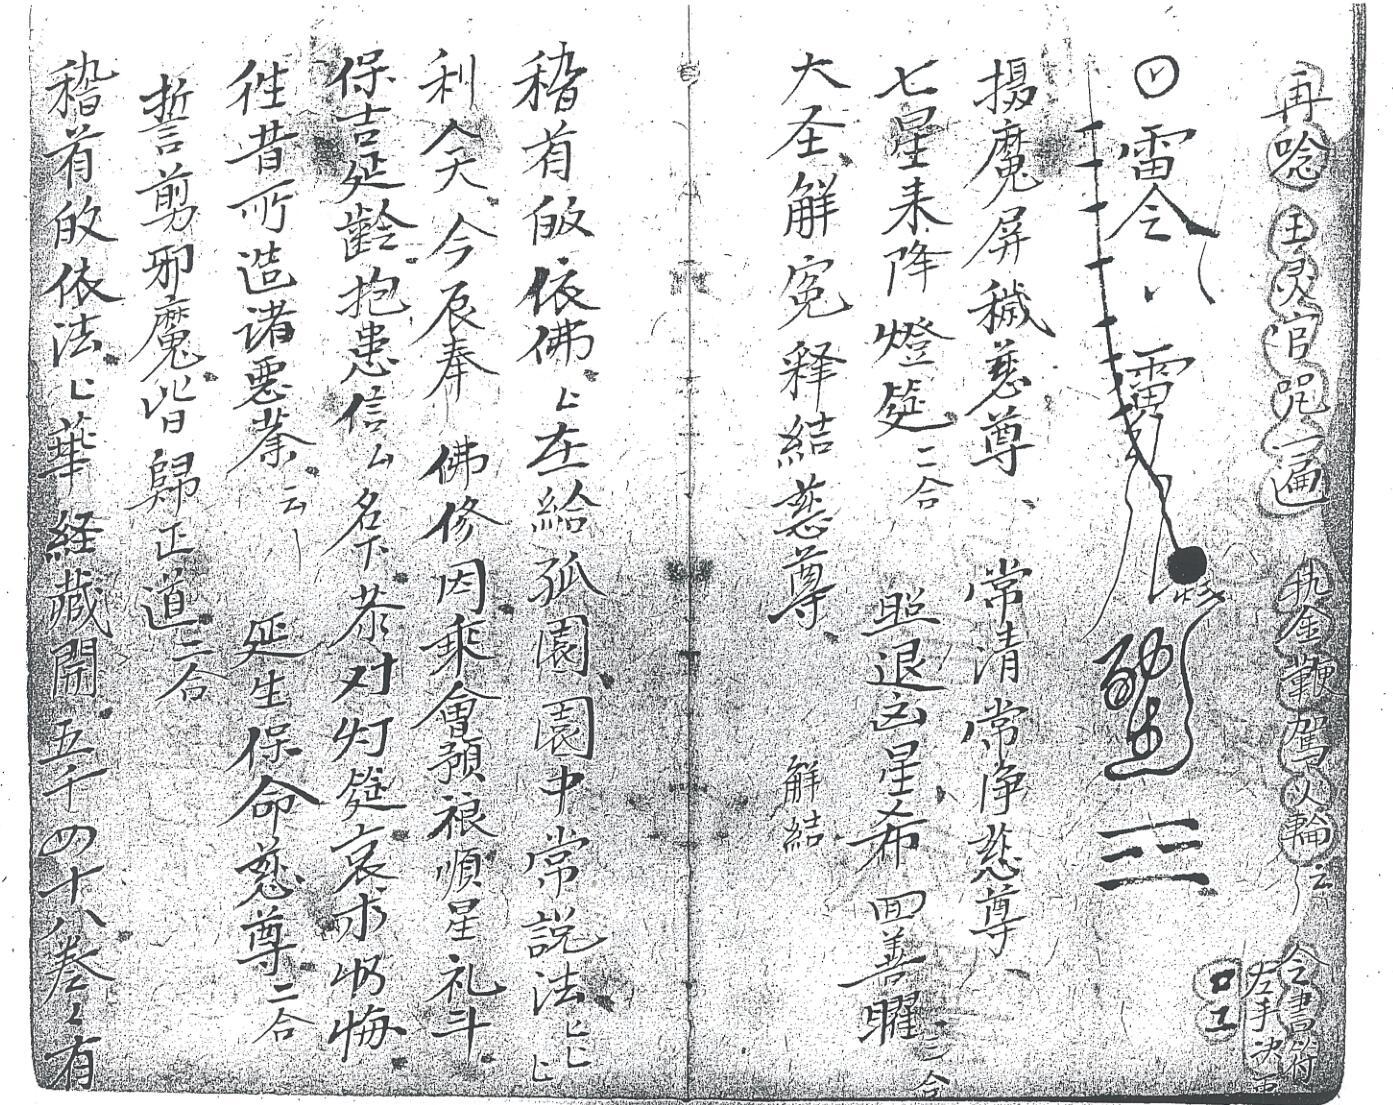 再唸王灵官咒一遍 执金鞭驾火輪云 令書符
左手决
雷令
摄魔屏穢慈尊、常清常净慈尊、
七星来降燈筵二合 照退凶星希四善曜二合
大圣解冤释结慈尊 解結
稽首皈依佛上在給孤園園中常説法
利人天今辰奉佛修因乘會預禳順星礼斗
保吉延齡抱患信厶名下恭对灯筵哀求忏悔
徃昔所造诸惡業云 延生保命慈尊二合
誓剪邪魔皆歸正道二合
稽首皈依法上華経藏開五千四十八卷有